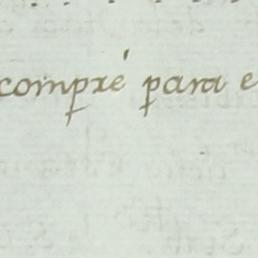 compré para e